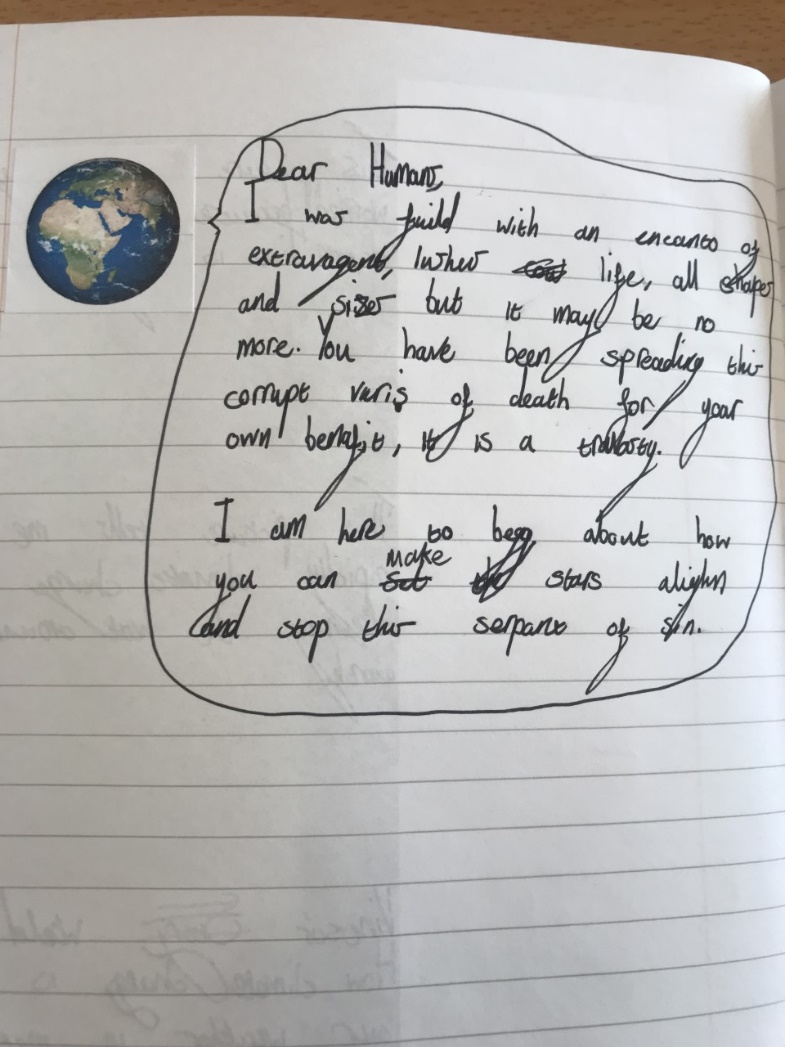 Dear Humans,
I was fuild with an encanto of
extravagent, lusher life, all shapes
and sizes but it may be no
more. You have been spreading this
corrupt varis of death for your
own benafit, it is a
I am here to beg about how
you can make stars alighn
and stop this serpant of sin.